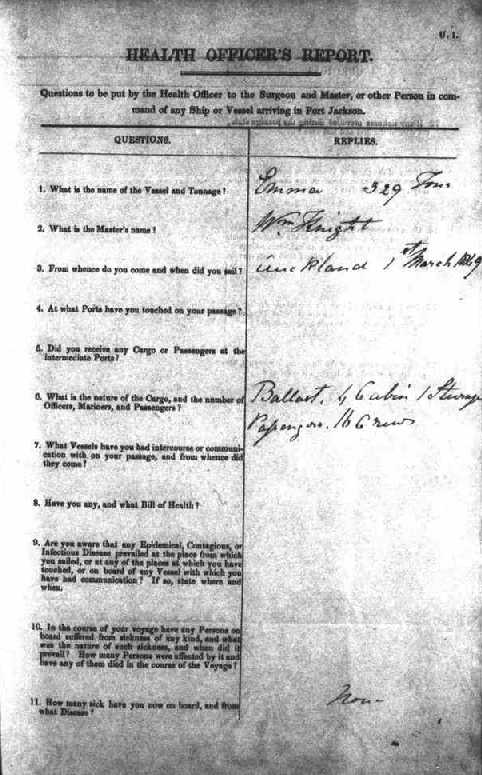 U. 1.
HEALTH OFFICER'S REPORT.
Questions to be put by the Health Officer to the Surgeon and Master, or other Person in com-
mand of any Ship or Vessel arriving in Port Jackson.
QUESTIONS. REPLIES.
1. What is the name of the Vessel and Tonnage? Emma 329 Tons
2. What is the Master's name? Wm Knight
3. From whence do you come and when did you sail? Auckland 1st March 1849
4. At what Ports have you touched on your passage?
5. Did you receive any Cargo or Passengers at the
Intermediate Ports?
6. What is the nature of the Cargo, and the number of Ballast. 4 Cabin 1 Steerage
Officers, Mariners, and Passengers? Passengers. 16 Crew
7. What Vessels have you had intercourse or communi-
cation with on your passage, and from whence did
they come?
8. Have you any, and what Bill of Health?
9. Are you aware that any Epidemical, Contagious, or
Infectious Disease prevailed at the place from which
you sailed, or at any of the places at which you have
touched, or on board of any Vessel with which you
have had communication? If so, state where and
when.
10. In the course of your voyage have any Persons on
board suffered from sickness of any kind, and what
was the nature of such sickness, and when did it
prevail? How many Persons were affected by it and
have any of them died in the course of the Voyage?
11. How many sick have you now on board, and from None
what Disease?